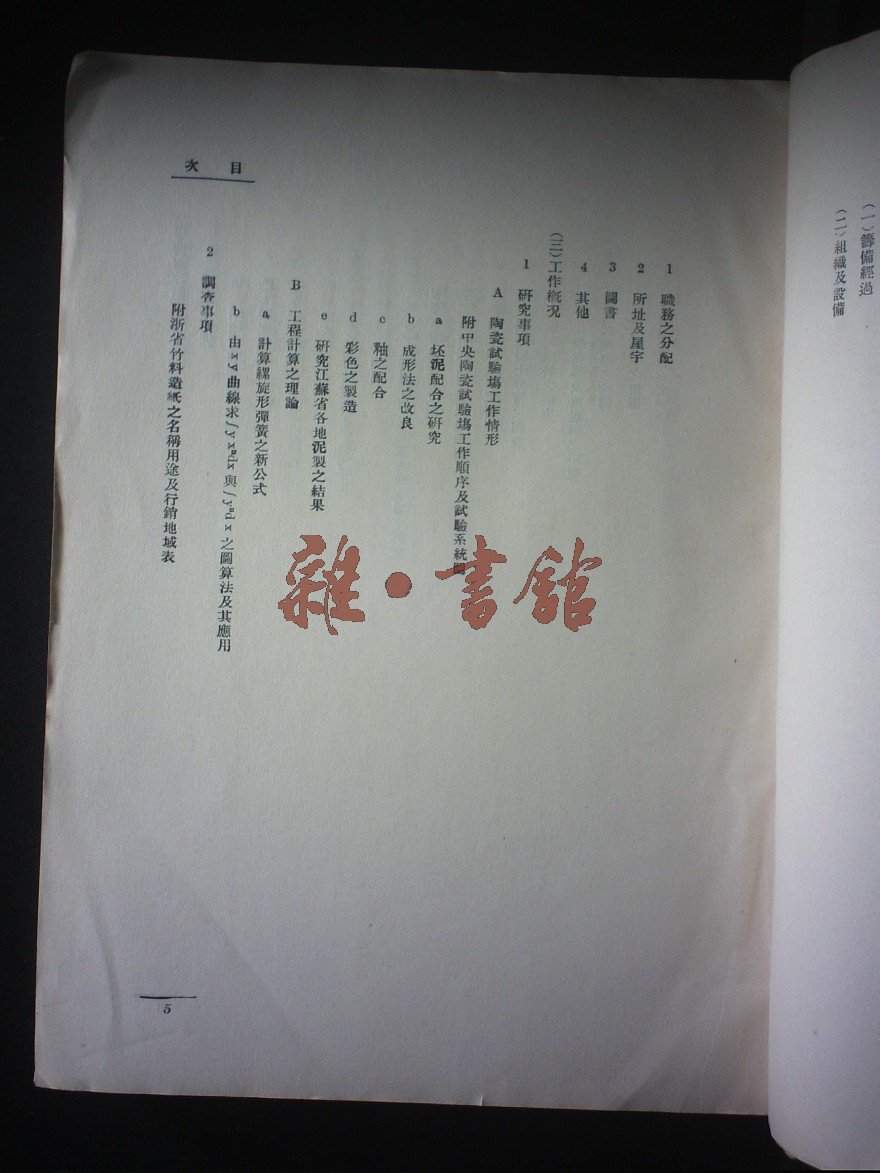 (一)籌備經過
(二)組織及設備
目次
1 職務之分配
2 所址及屋宇
3 圖書
4 其他
(三)工作概况
1 研究事項
A 陶瓷試驗塲工作情形
附中央陶瓷試驗塲工作順序及試驗系統圖
a 坯泥配合之研究
b 成形法之改良
c 釉之配合
d 彩色之製造
e 研究江蘇省各地泥製之結果
B 工程計算之理論
a 計算縲旋形彈簧之新公式
b 由xy曲線求∫yxⁿdx與∫yⁿdx之圖算法及其應用
2 調查事項
附浙省竹料造紙之名稱用途及行銷地域表
5
雜·書館